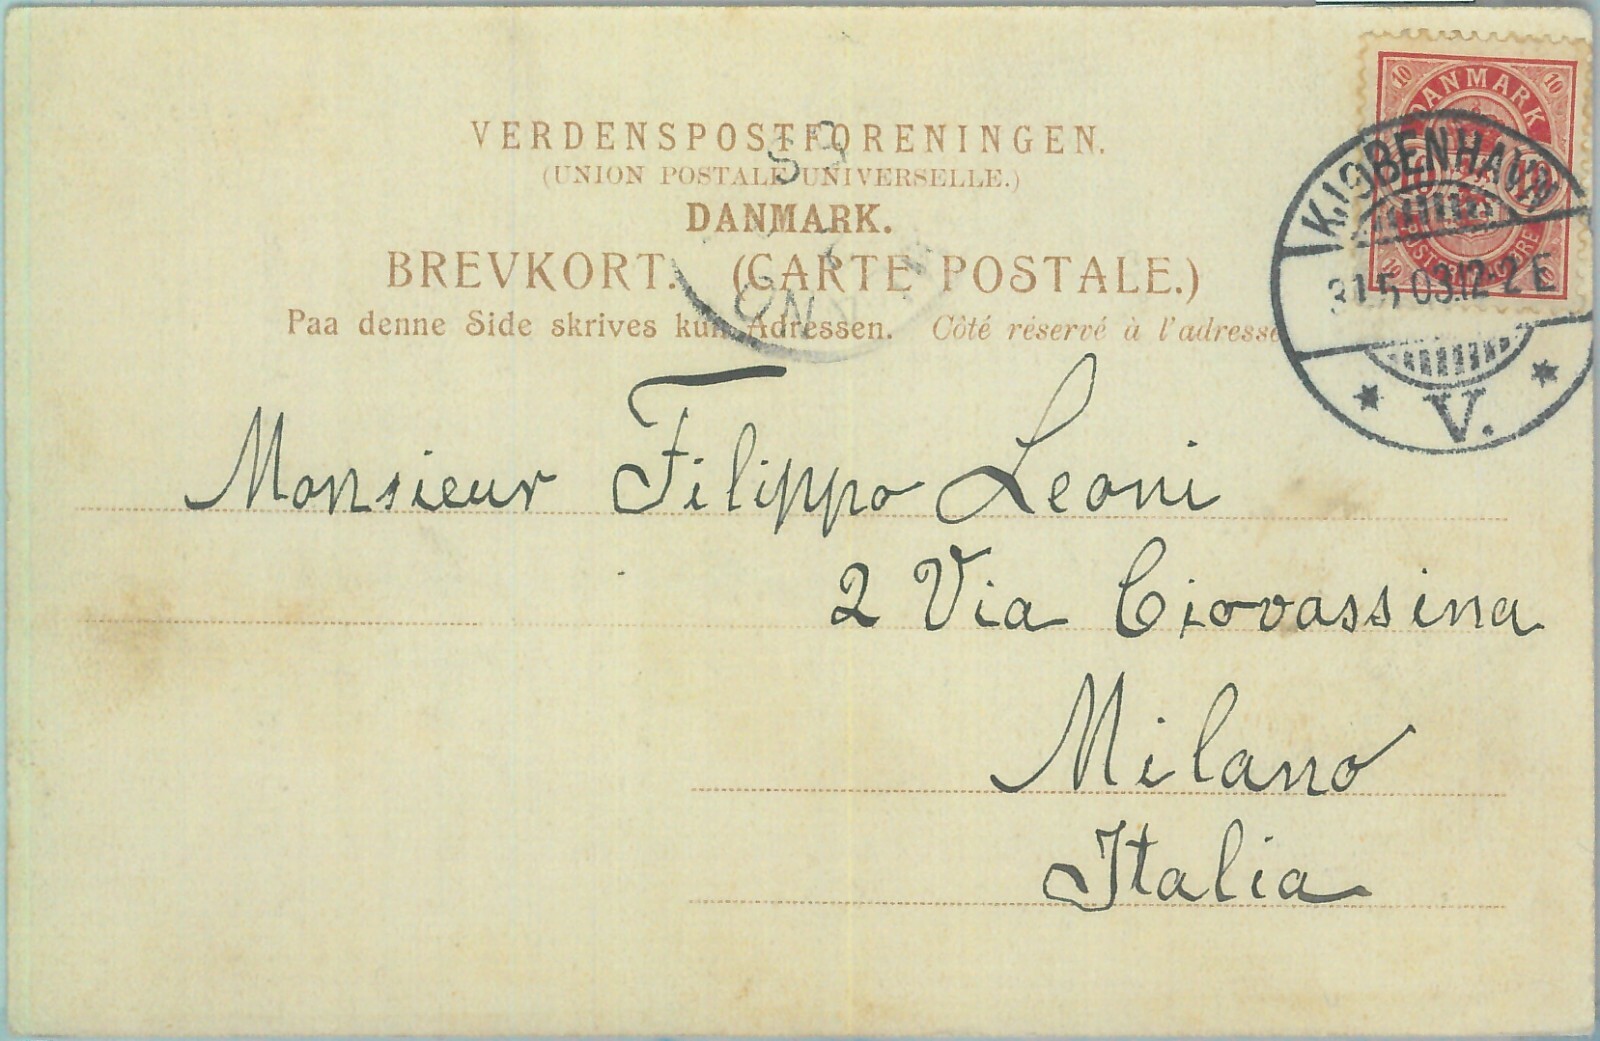 10 DANMARK 10
KJØBENHAVN
31.5.03.12-2 E
V.
VERDENSPOSTFORENINGEN.
(UNION POSTALE UNIVERSELLE.)
DANMARK.
BREVKORT. (CARTE POSTALE.)
Paa denne Side skrives kun Adressen. Côté réservé à l'adresse
Monsieur Filippo Leoni
2 Via Ciovassina
Milano
Italia